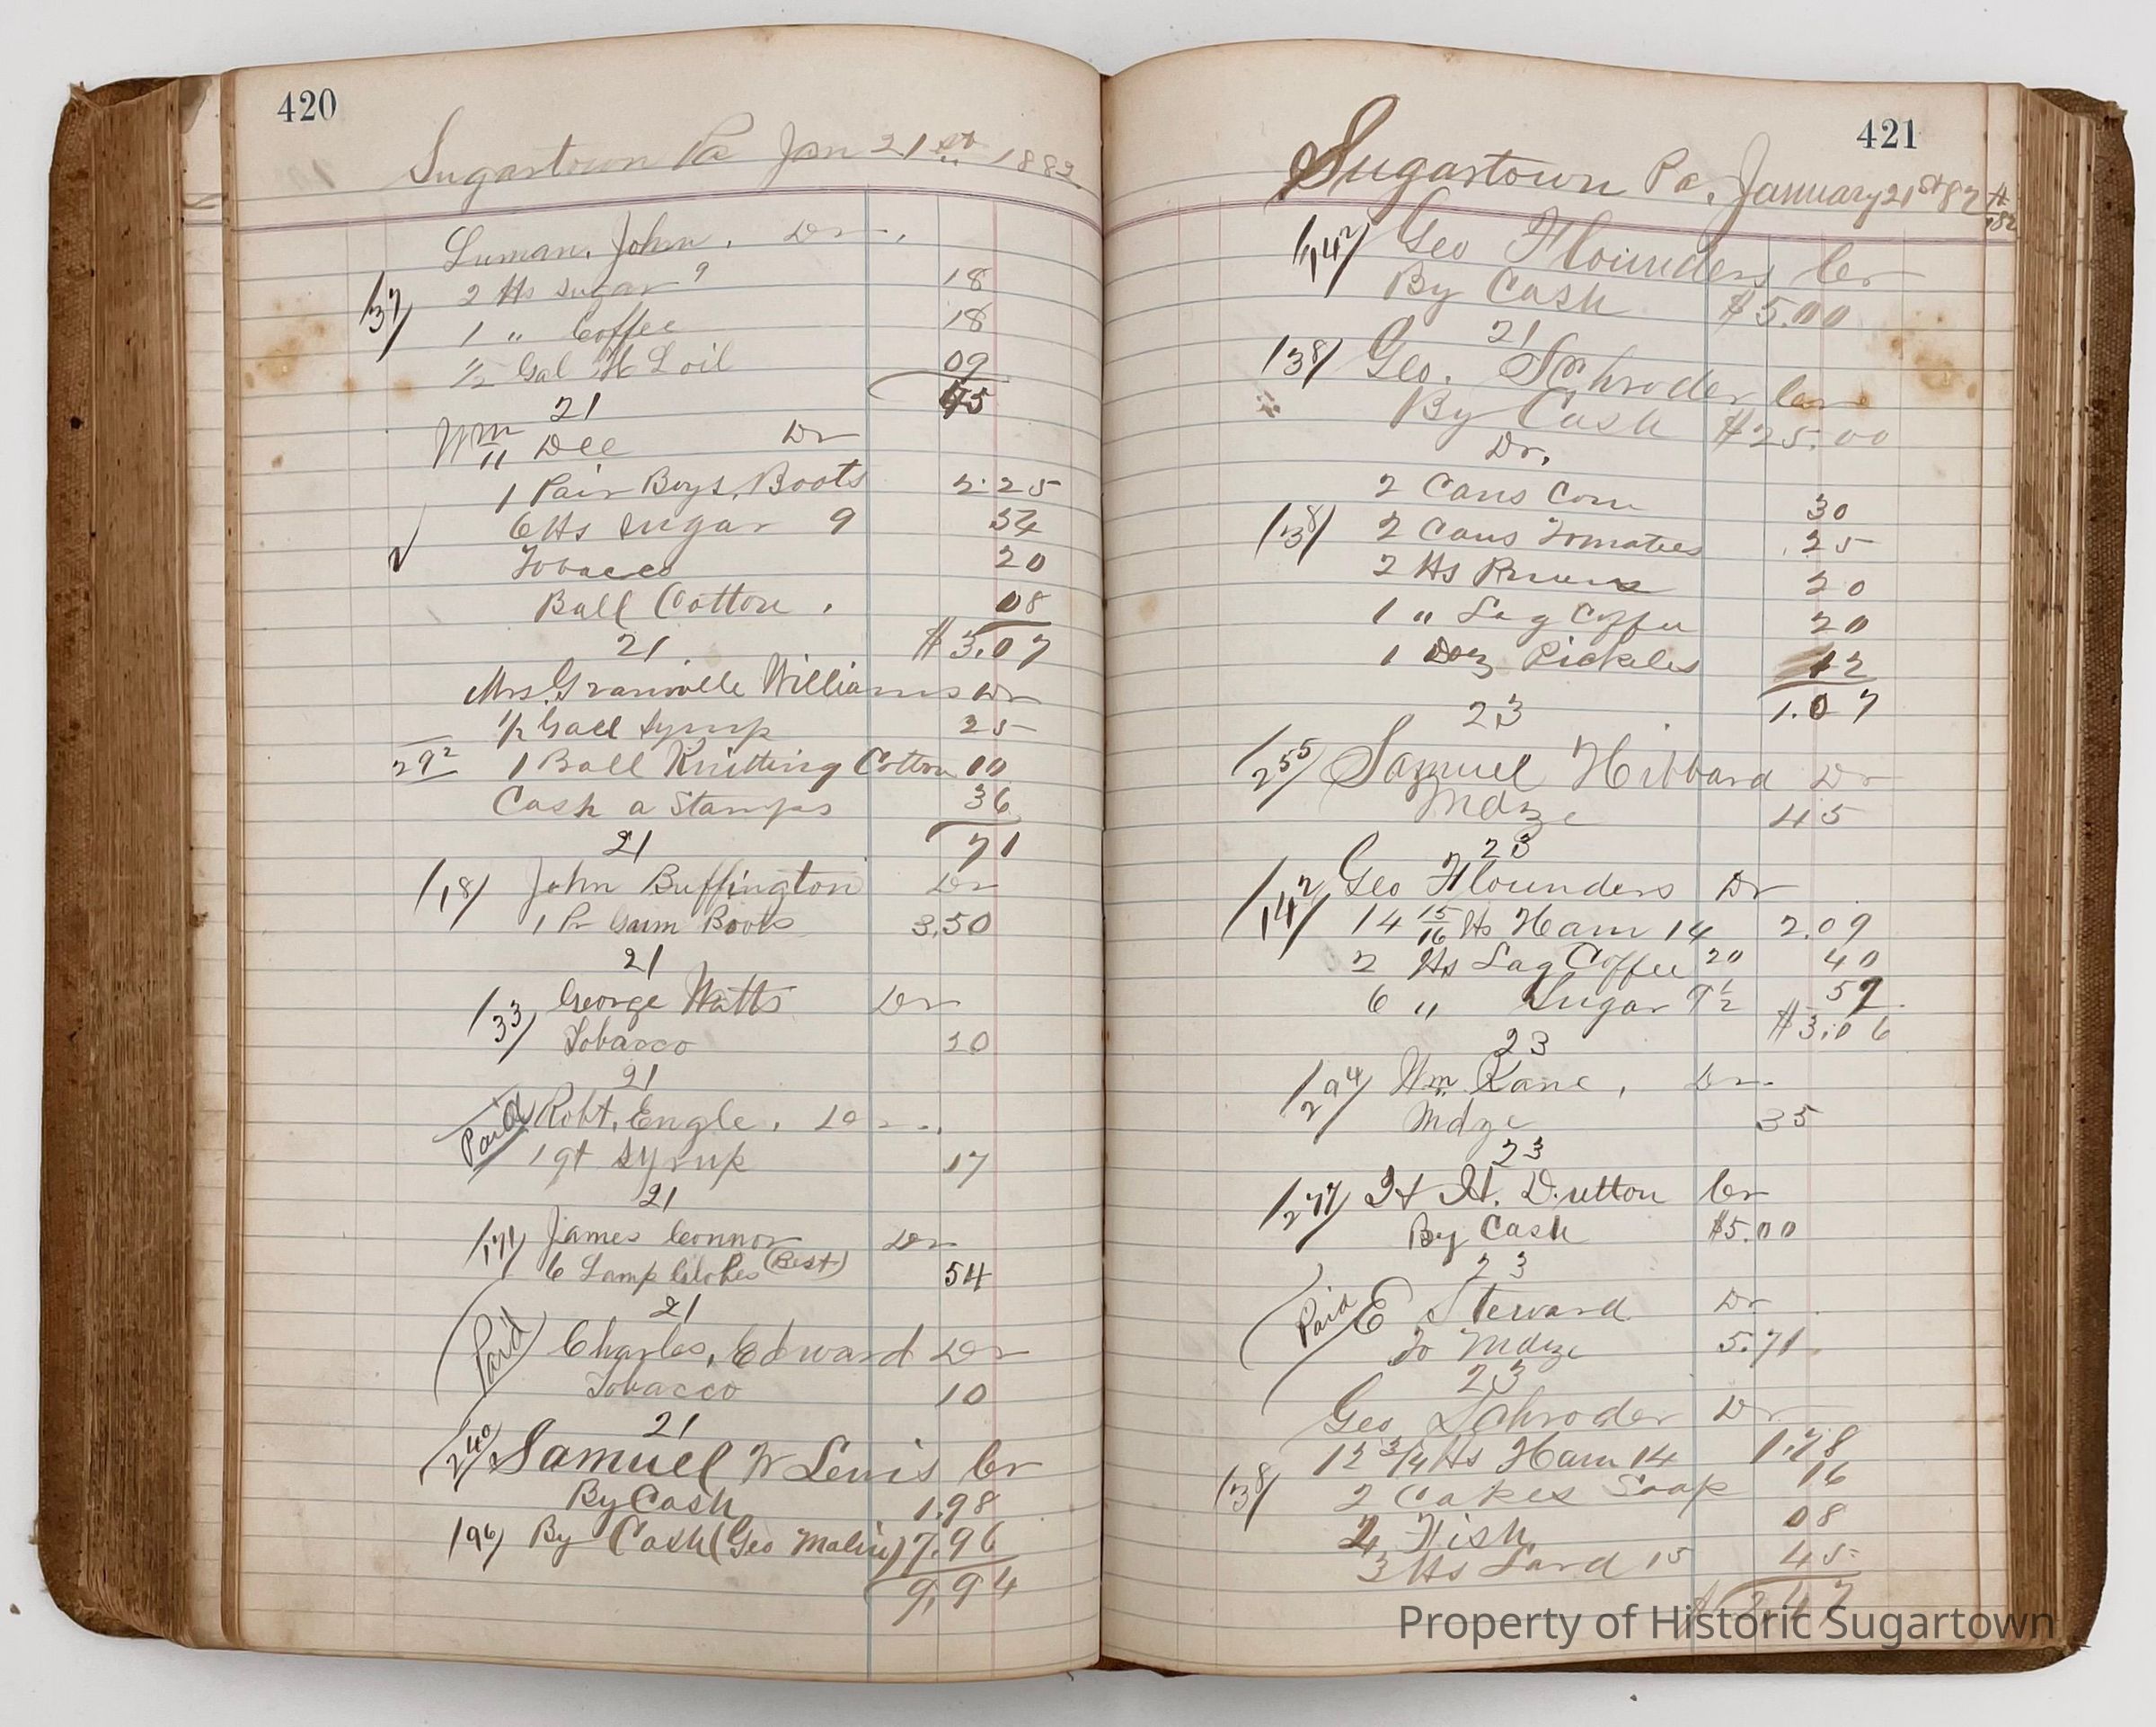 420
Sugartown Pa Jan 21st 1882
Luman, John, Dr
37 2 lbs sugar 9 18
1 " Coffee 18
1/2 Gal H L oil 09
45
21
Wm Dee Dr
1 Pair Boys, Boots 2.25
6 lbs sugar 9 54
Tobacco 20
Ball Cotton, 08
$3.07
21
Mrs. Granville Williams Dr
1/2 Gall Syrup 25
292 1 Ball Knitting Cotton 10
Cash a Stamps 36
71
21
18 John Buffington Dr
1 Pr Gum Boots 3.50
21
33 George Watts Dr
Tobacco 20
21
Paid Robt, Engle, Dr
1 qt Syrup 17
21
171 James Connor Dr
6 Lamp Globes (Best) 54
21
Paid Charles, Edward Dr
Tobacco 10
21
240 Samuel W Lewis Cr
By Cash 1.98
196 By Cash (Geo Malin) 7.96
9.94
421
Sugartown Pa. January 21st 82
142 Geo Flounders Cr
By Cash $5.00
21
38 Geo. Schroder Cr
By Cash $25.00
Dr.
2 Cans Corn 30
38 2 Cans Tomatoes .25
2 lbs Pruns 20
1 " Lag Coffee 20
1 Doz Pickeles 12
1.07
23
255 Samuel Hibbard Dr
Mdze 45
23
142 Geo Flounders Dr
14 15/16 lbs Ham 14 2.09
2 lbs Lag Coffee 20 40
6 " Sugar 9 1/2 57
$3.06
23
294 Wm Kane, Dr
Mdze 35
23
277 H. Dutton Cr
By Cash $5.00
23
Paid E Steward Dr
To Mdze 5.71
23
Geo Schroder Dr
12 3/4 lbs Ham 14 1.78
38 2 Cakes Soap 16
2 Fish 08
3 lbs Lard 15 45
2.47
Property of Historic Sugartown